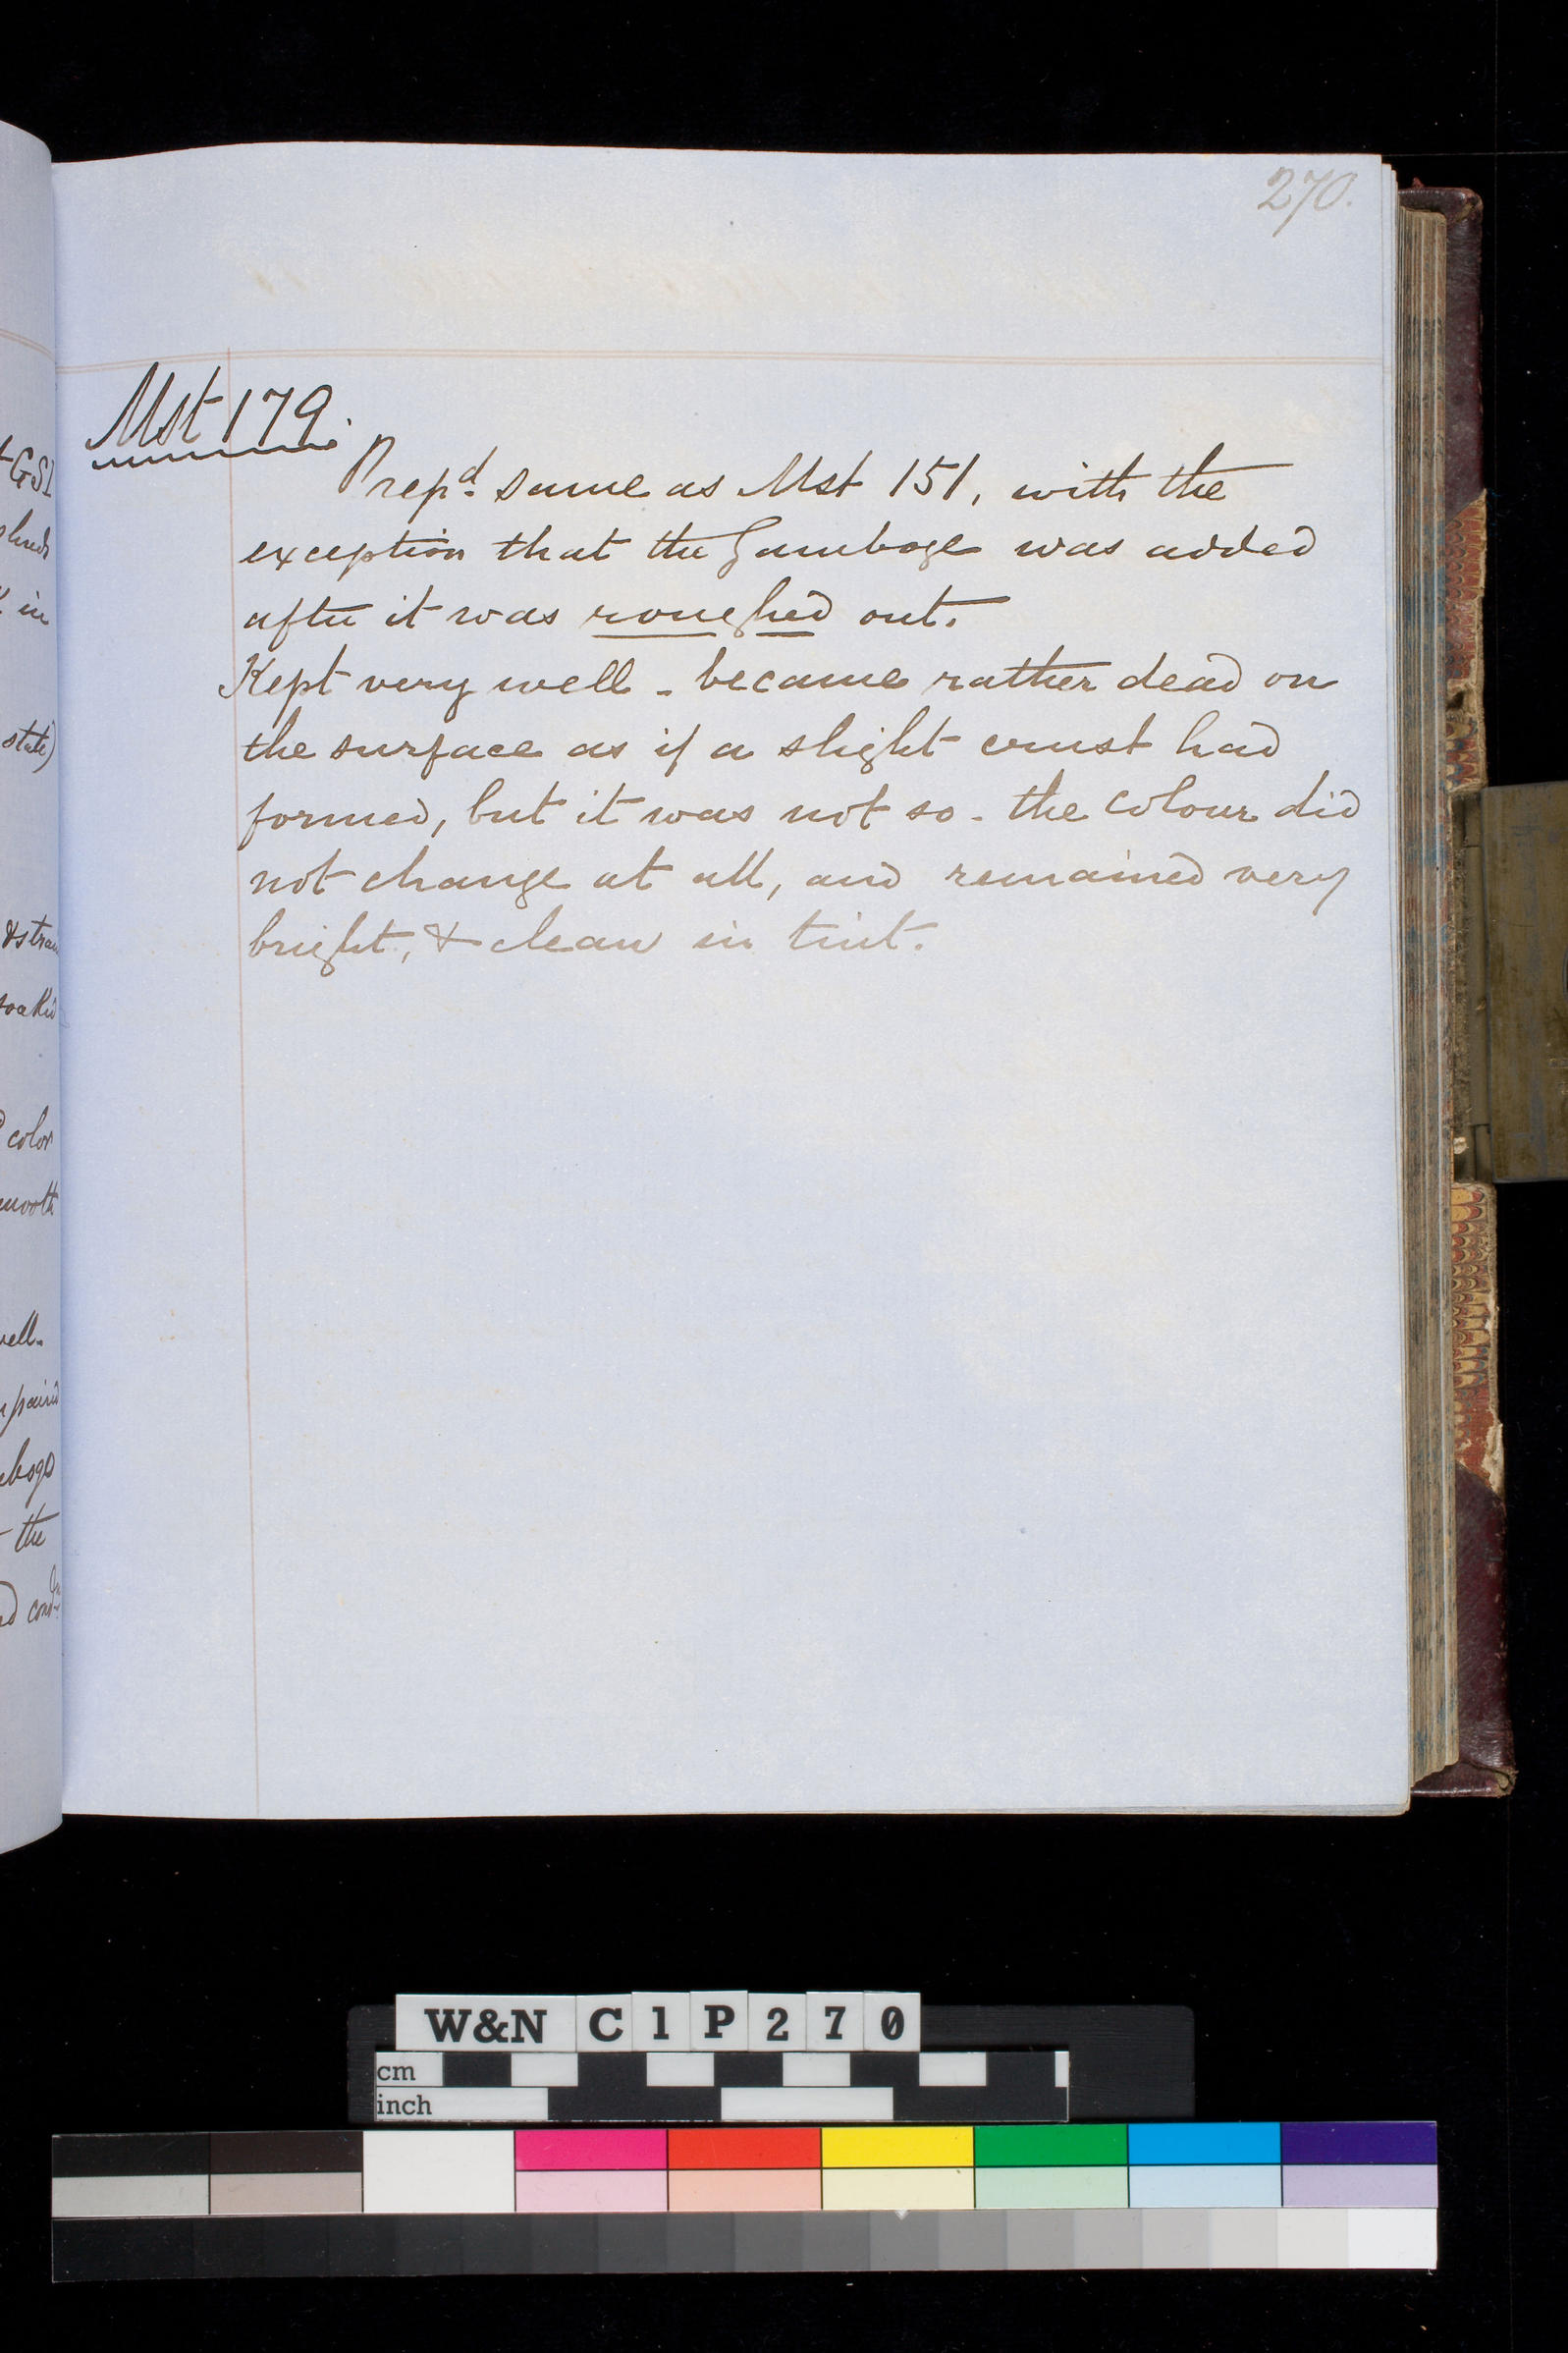 270.
Mst 179.
Prepd. same as Mst 151, with the
exception that the Gamboge was added
after it was roughed out.
Kept very well - became rather dead on
the surface as if a slight crust had
formed, but it was not so - the colour did
not change at all, and remained very
bright, & clean in tint.
GS1
in
state)
& strain
soaked
color
smooth
well.
the
W&N C1P270
cm
inch